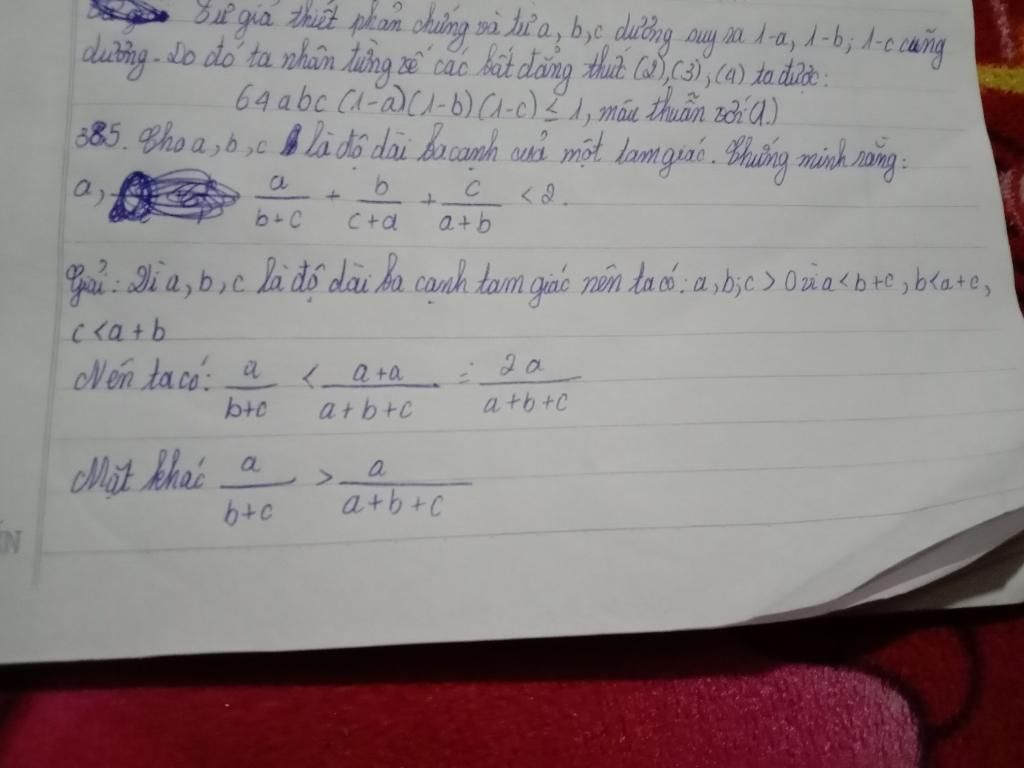 Từ giả thiết phản chứng và từ a, b, c dương suy ra 1-a, 1-b; 1-c cũng
dương. Do đó ta nhân từng vế các bất đẳng thức (2), (3), (4) ta được:
64abc (1-a)(1-b)(1-c) ≤ 1, mâu thuẫn với (1.)
385. Cho a, b, c là độ dài ba cạnh của một tam giác. Chứng minh rằng:
a, a/(b+c) + b/(c+a) + c/(a+b) < 2.
Giải: Vì a, b, c là độ dài ba cạnh tam giác nên ta có: a, b; c > 0 và a < b+c, b < a+c,
c < a+b
Nên ta có: a/(b+c) < (a+a)/(a+b+c) = 2a/(a+b+c)
Mặt khác a/(b+c) > a/(a+b+c)